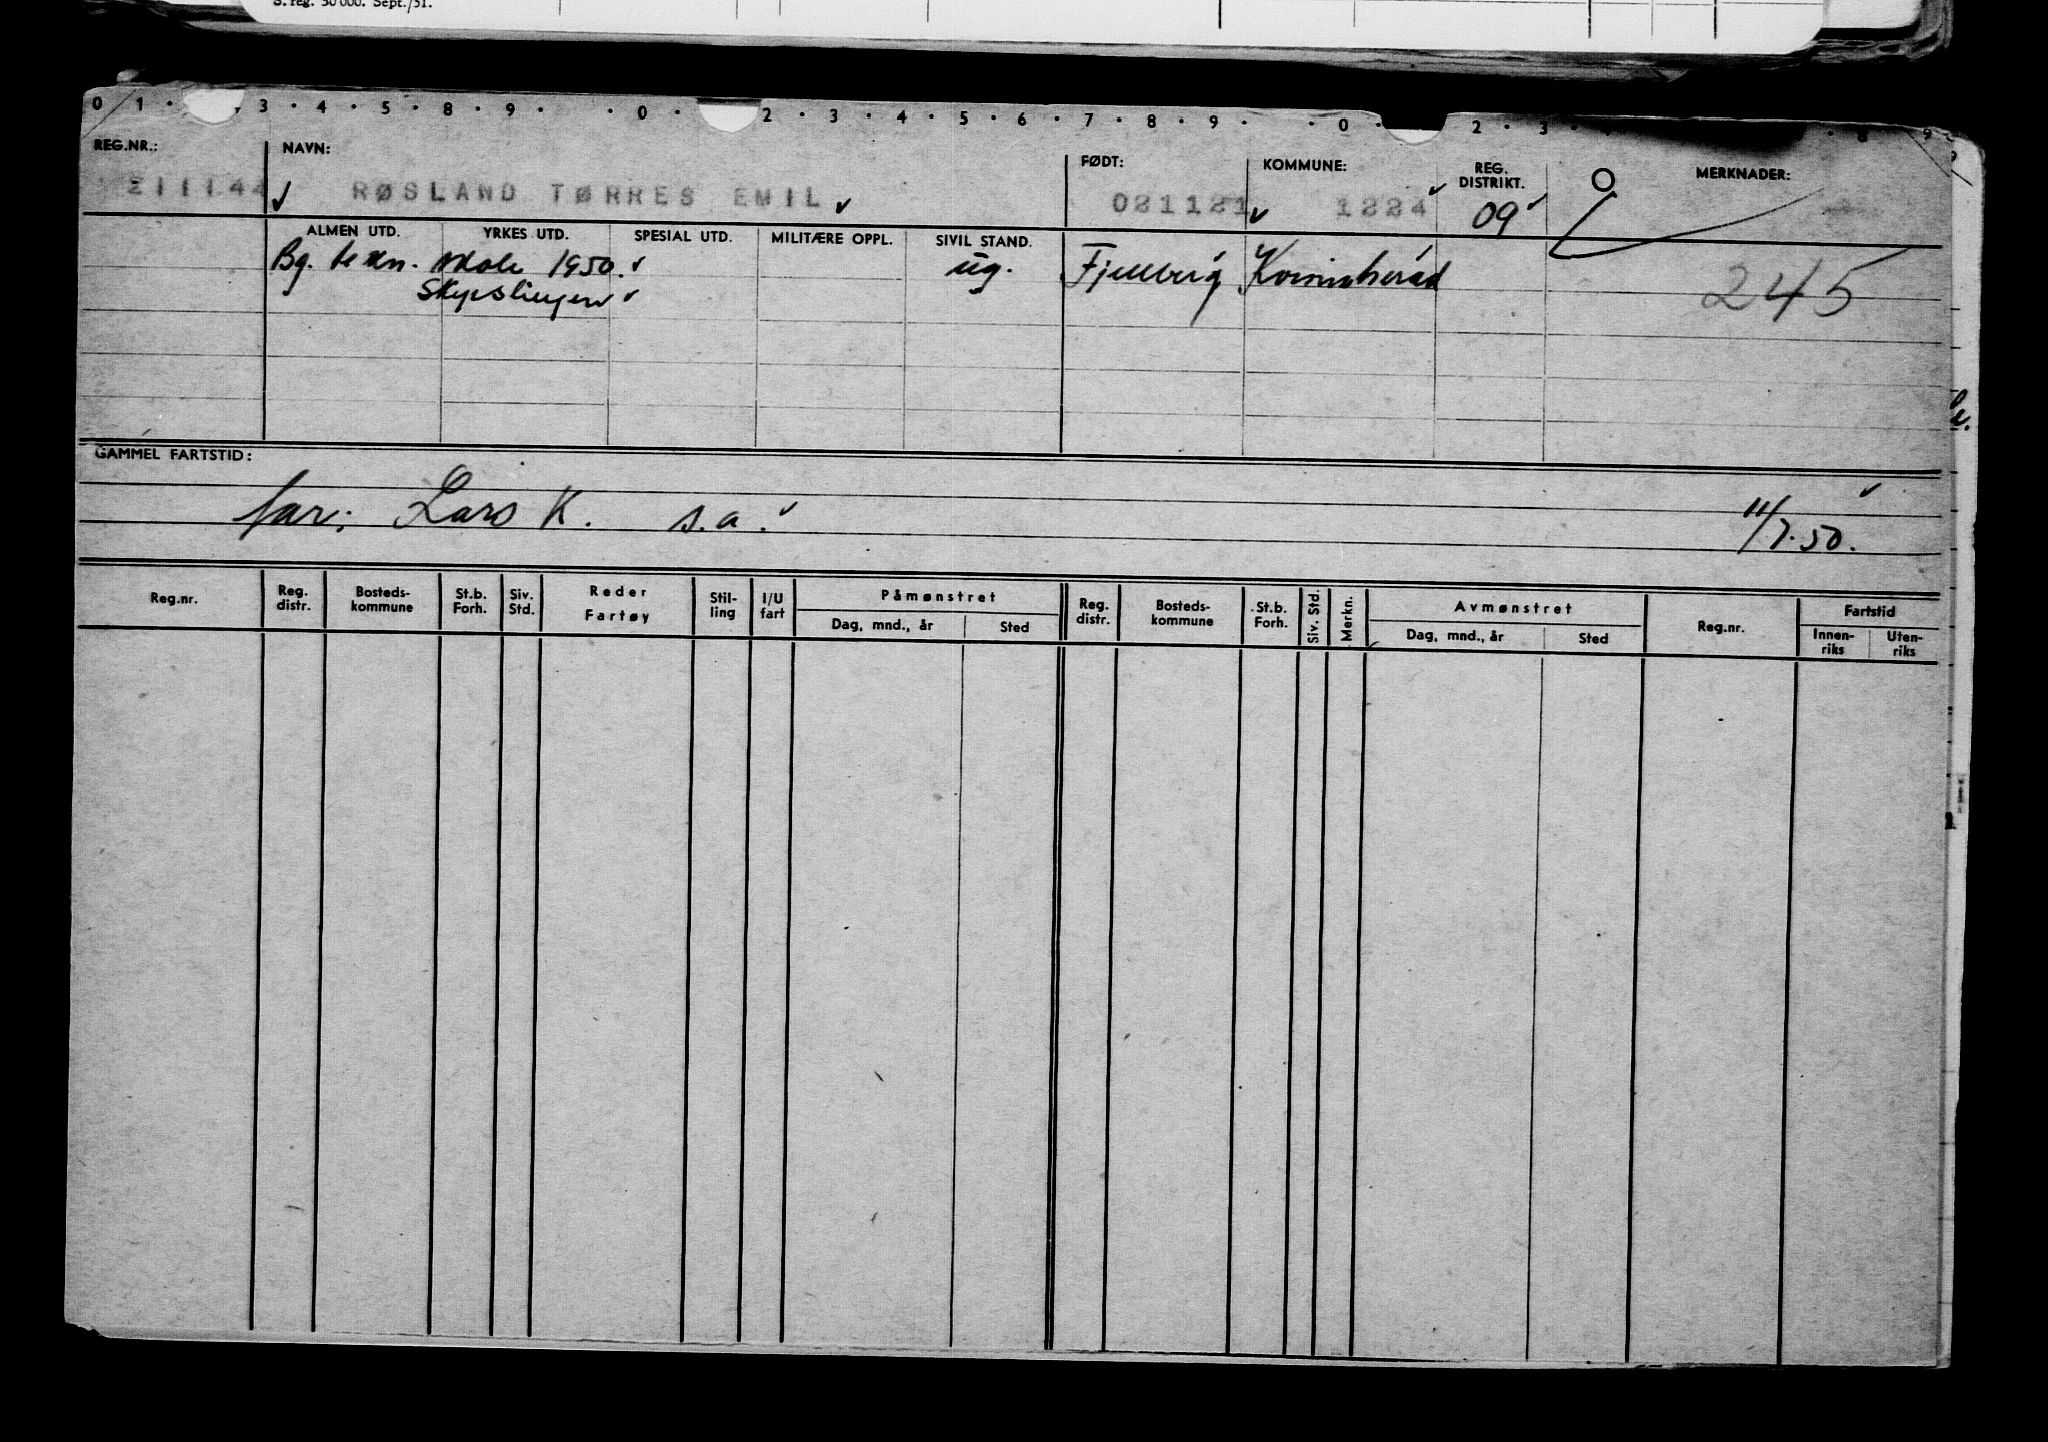 S. reg. 50 000. Sept./51.
0 1 · 3 · 4 · 5 · 8 · 9 · · 0 · 2 · 3 · 4 · 5 · 6 · 7 · 8 · 9 · · 0 · 2 · 3 · 8 9
REG.NR.: NAVN: FØDT: KOMMUNE: REG. DISTRIKT. MERKNADER:
211144 RØSLAND TØRRES EMIL 021121 1224 09
ALMEN UTD. YRKES UTD. SPESIAL UTD. MILITÆRE OPPL. SIVIL STAND.
Bg. tekn. skole 1950. ug. Fjelberg Kvinnherad 245
GAMMEL FARTSTID:
far: Lars K. s.a. 11/7.50.
Reg.nr. Reg. distr. Bosteds- kommune St.b. Forh. Siv. Std. Reder Fartøy Stil- ling I/U fart Påmønstret Dag, mnd., år Sted Reg. distr. Bosteds- kommune St.b. Forh. Siv. Std. Merkn. Avmønstret Dag, mnd., år Sted Reg.nr. Fartstid Innen- riks Uten- riks